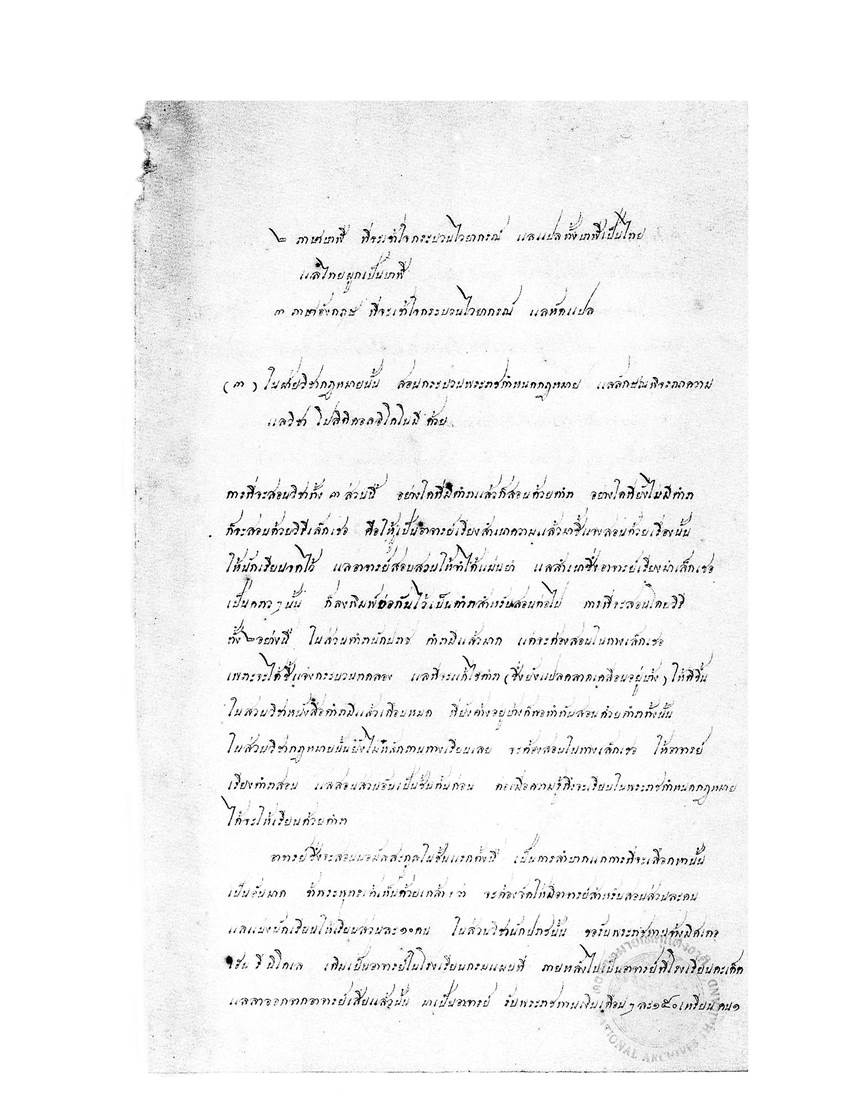 ๒ ภาษาบาฬี ที่จะเข้าใจกระบวนไวยากรณ์ แลแปลทั้งบาฬีเป็นไทย
แลไทยผูกเป็นบาฬี
๓ ภาษาอังกฤษ ที่จะเข้าใจกระบวนไวยากรณ์ แลหัดแปล
(๓) ในฝ่ายวิชากฎหมายนั้น สอนกระบวนพระราชกำหนดกฎหมาย แลลักษณพิจารณาความ
แลวิชา โปลิติคอลอิโคโนมี ด้วย
การที่จะสอนวิชาทั้ง ๓ ส่วนนี้ อย่างใดที่มีตำราแล้วก็สอนด้วยตำรา อย่างใดที่ยังไม่มีตำรา
ก็จะสอนด้วยวิธีเล็กเชอ คือให้ผู้เป็นอาจารย์เรียงสำเนาความแล้วมาชี้แจงสอนด้วยเรื่องนั้น
ให้นักเรียนจดไว้ แลอาจารย์สอบสวนให้จำได้แม่นยำ แลสำเนาซึ่งอาจารย์เรียงมาเล็กเชอ
เป็นคราวๆ นั้น ก็ลงพิมพ์ต่อกันไว้เป็นตำราสำหรับสอนต่อไป การที่จะสอนโดยวิธี
ทั้ง ๒ อย่างนี้ ในส่วนตำรานักปราช ตำรามีแล้วมาก แต่จะต้องสอนในทางเล็กเชอ
เพราะจะได้ชี้แจงกระบวนทดลอง แลที่จะแก้ไขตำรา (ซึ่งยังแปลคลาดเคลื่อนอยู่บ้าง) ให้ดีขึ้น
ในส่วนวิชาหนังสือตำรามีแล้วเกือบหมด ที่ยังค้างอยู่บ้างก็พอทำทันสอนด้วยตำราทั้งนั้น
ในส่วนวิชากฎหมายนั้นยังไม่มีหลักฐานทางเรียนเลย จะต้องสอนในทางเล็กเชอ ให้อาจารย์
เรียงตำราสอน แลสอนส่วนอันเป็นชั้นต้นก่อน ต่อเมื่อความรู้ถึงจะเรียนในพระราชกำหนดกฎหมาย
ได้จะให้เรียนด้วยตำรา
อาจารย์ซึ่งจะสอนนอมัลสะกูลในชั้นแรกตั้งนี้ เป็นการลำบากแก่การที่จะเลือกหานั้น
เป็นอันมาก ข้าพระพุทธเจ้าเห็นด้วยเกล้าฯ ว่า จะต้องจัดให้มีอาจารย์สำหรับสอนส่วนละคน
แลแบ่งนักเรียนให้เรียนส่วนละ ๑๐ คน ในส่วนวิชานักปราชนั้น ขอรับพระราชทานจ้างมิสเตอ
ชี นิโคเล เดิมเป็นอาจารย์ในโรงเรียนกรมแผนที่ ภายหลังไปเป็นอาจารย์ที่โรงเรียนคะเด็ต
แลลาออกจากอาจารย์เสียแล้วนั้น มาเป็นอาจารย์ รับพระราชทานเงินเดือนๆ ละ ๑๕๐ เหรียญ คน ๑
NATIONAL ARCHIVES THAILAND